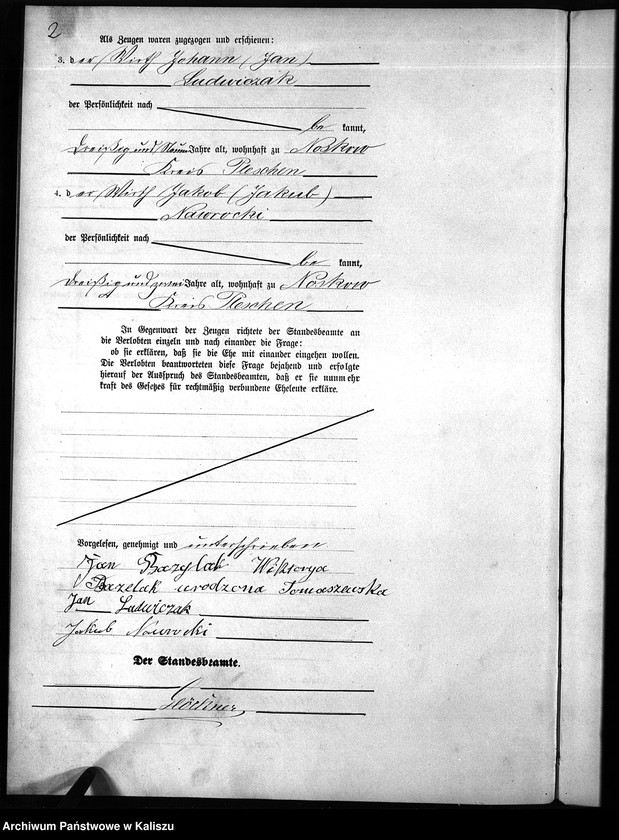 2
Als Zeugen waren zugezogen und erschienen:
3. der Wirth Johann (Jan)
Ludwiczak
der Persönlichkeit nach
be kannt,
dreißig und neun Jahre alt, wohnhaft zu Noskow
Kreis Pleschen
4. der Wirth Jakob (Jakub)
Nawrocki
der Persönlichkeit nach
be kannt,
dreißig und zwei Jahre alt, wohnhaft zu Noskow
Kreis Pleschen
In Gegenwart der Zeugen richtete der Standesbeamte an
die Verlobten einzeln und nach einander die Frage:
ob sie erklären, daß sie die Ehe mit einander eingehen wollen.
Die Verlobten beantworteten diese Frage bejahend und erfolgte
hierauf der Ausspruch des Standesbeamten, daß er sie nunmehr
kraft des Gesetzes für rechtmäßig verbundene Eheleute erkläre.
Vorgelesen, genehmigt und unterschrieben
Jan Bazylak Wiktorya
Bazelak urodzona Tomaszewska
Jan Ludwiczak
Jakub Nawrocki
Der Standesbeamte.
Archiwum Państwowe w Kaliszu